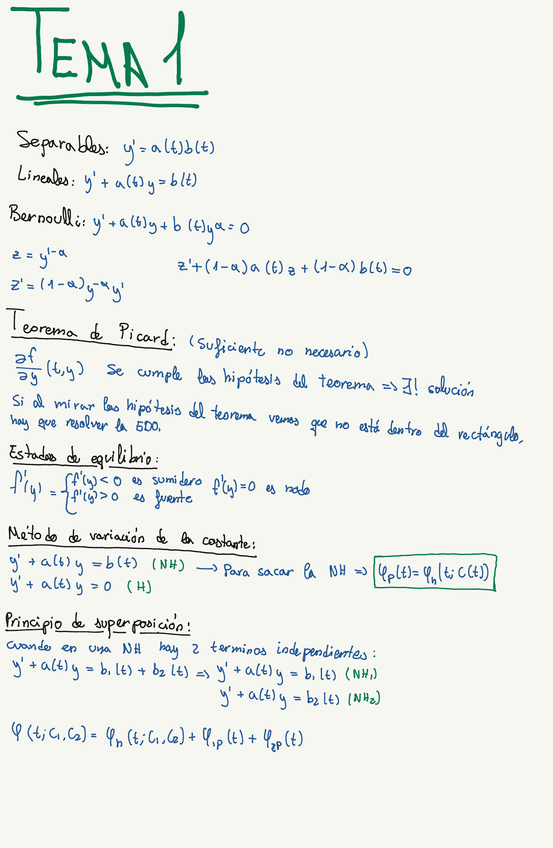 TEMA 1
Separables: y' = a(t)b(t)
Lineales: y' + a(t)y = b(t)
Bernoulli: y' + a(t)y + b(t)y^α = 0
z = y^{1-α}    z' + (1-α)a(t)z + (1-α)b(t) = 0
z' = (1-α)y^{-α}y'
Teorema de Picard: (Suficiente no necesario)
∂f/∂y (t,y) Se cumple las hipótesis del teorema => ∃! solución
Si al mirar las hipótesis del teorema vemos que no está dentro del rectángulo,
hay que resolver la EDO.
Estados de equilibrio:
f'(y) = { f'(y) < 0 es sumidero f'(y) = 0 es nodo
f'(y) > 0 es fuente
Método de variación de la costante:
y' + a(t)y = b(t) (NH) → Para sacar la NH => φp(t) = φh(t; C(t))
y' + a(t)y = 0 (H)
Principio de superposición:
cuando en una NH hay 2 terminos independientes:
y' + a(t)y = b₁(t) + b₂(t) => y' + a(t)y = b₁(t) (NH₁)
y' + a(t)y = b₂(t) (NH₂)
φ(t; C₁, C₂) = φh(t; C₁, C₂) + φ1p(t) + φ2p(t)